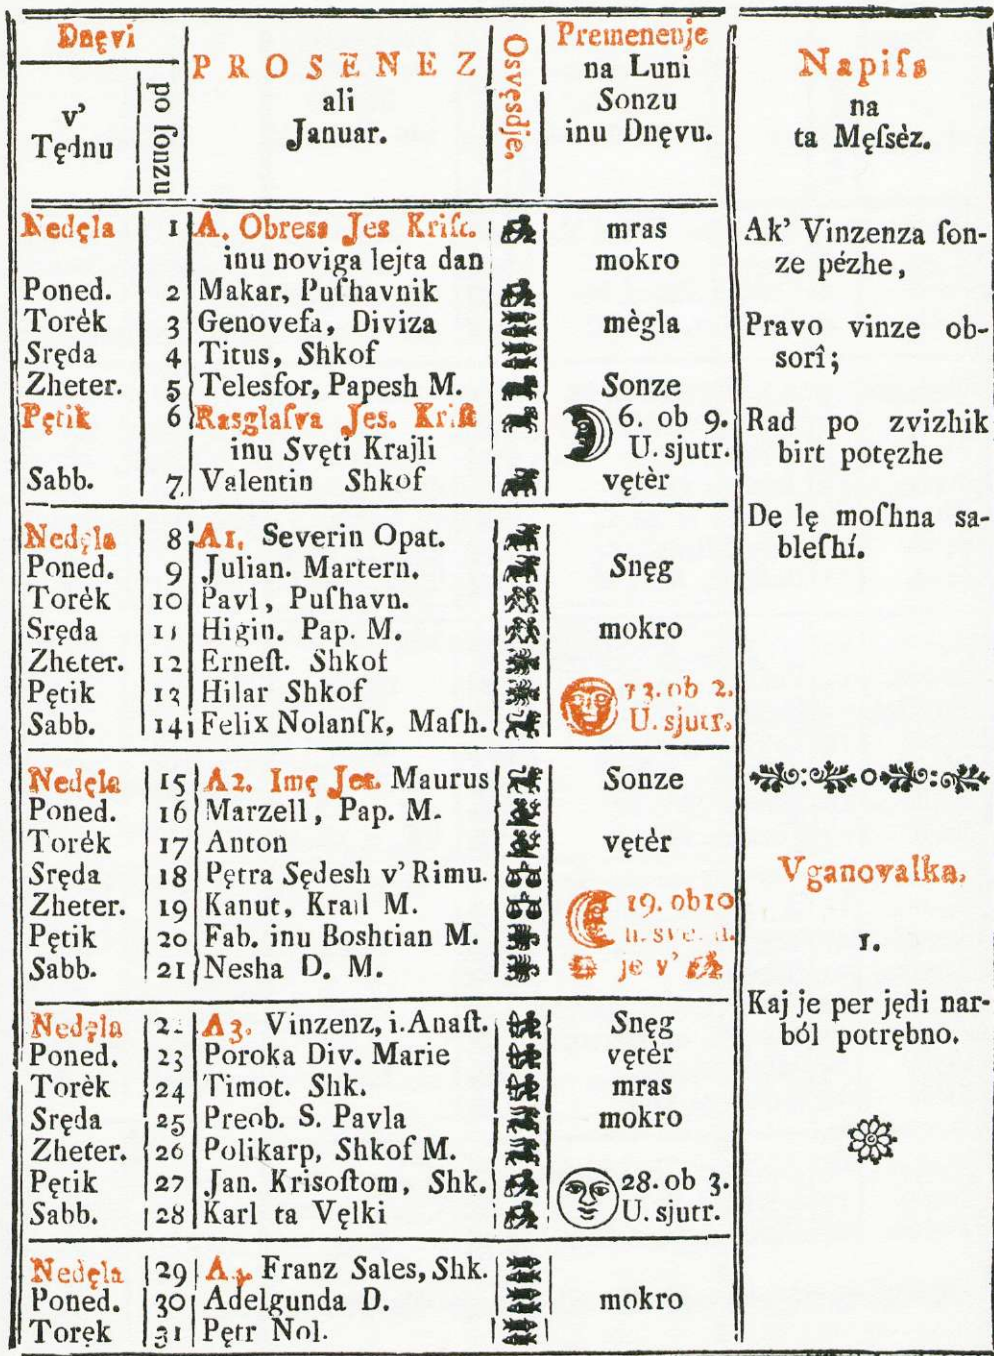 Dnęvi
v'
Tędnu
po ſonzu
PROSENEZ
ali
Januar.
Osvęsdje.
Premenenje
na Luni
Sonzu
inu Dnęvu.
Napiſs
na
ta Męſsèz.
Nedęla 1 A. Obress Jes Kriſt. mras
inu noviga lejta dan mokro
Poned. 2 Makar, Puſhavnik
Torèk 3 Genovefa, Diviza mègla
Sręda 4 Titus, Shkof
Zheter. 5 Telesfor, Papesh M. Sonze
Pętik 6 Rasglaſva Jes. Kriſt 6. ob 9.
inu Svęti Krajli U. sjutr.
Sabb. 7 Valentin Shkof vętèr
Nedęla 8 A1. Severin Opat.
Poned. 9 Julian. Martern. Snęg
Torèk 10 Pavl, Puſhavn.
Sręda 11 Higin. Pap. M. mokro
Zheter. 12 Erneſt. Shkof
Pętik 13 Hilar Shkof 13. ob 2.
Sabb. 14 Felix Nolanſk, Maſh. U. sjutr.
Nedęla 15 A2. Imę Jes. Maurus Sonze
Poned. 16 Marzell, Pap. M.
Torèk 17 Anton vętèr
Sręda 18 Pętra Sędesh v' Rimu.
Zheter. 19 Kanut, Krail M. 19. ob 10
Pętik 20 Fab. inu Boshtian M.
Sabb. 21 Nesha D. M. je v'
Nedęla 22 A3. Vinzenz, i. Anaſt. Snęg
Poned. 23 Poroka Div. Marie vętèr
Torèk 24 Timot. Shk. mras
Sręda 25 Preob. S. Pavla mokro
Zheter. 26 Polikarp, Shkof M.
Pętik 27 Jan. Krisoſtom, Shk. 28. ob 3.
Sabb. 28 Karl ta Vęlki U. sjutr.
Nedęla 29 A4. Franz Sales, Shk.
Poned. 30 Adelgunda D. mokro
Toręk 31 Pętr Nol.
Ak' Vinzenza ſon-
ze pézhe,
Pravo vinze ob-
sorî;
Rad po zvizhik
birt potęzhe
De lę moſhna sa-
bleſhí.
Vganovalka.
1.
Kaj je per jędi nar-
ból potrębno.